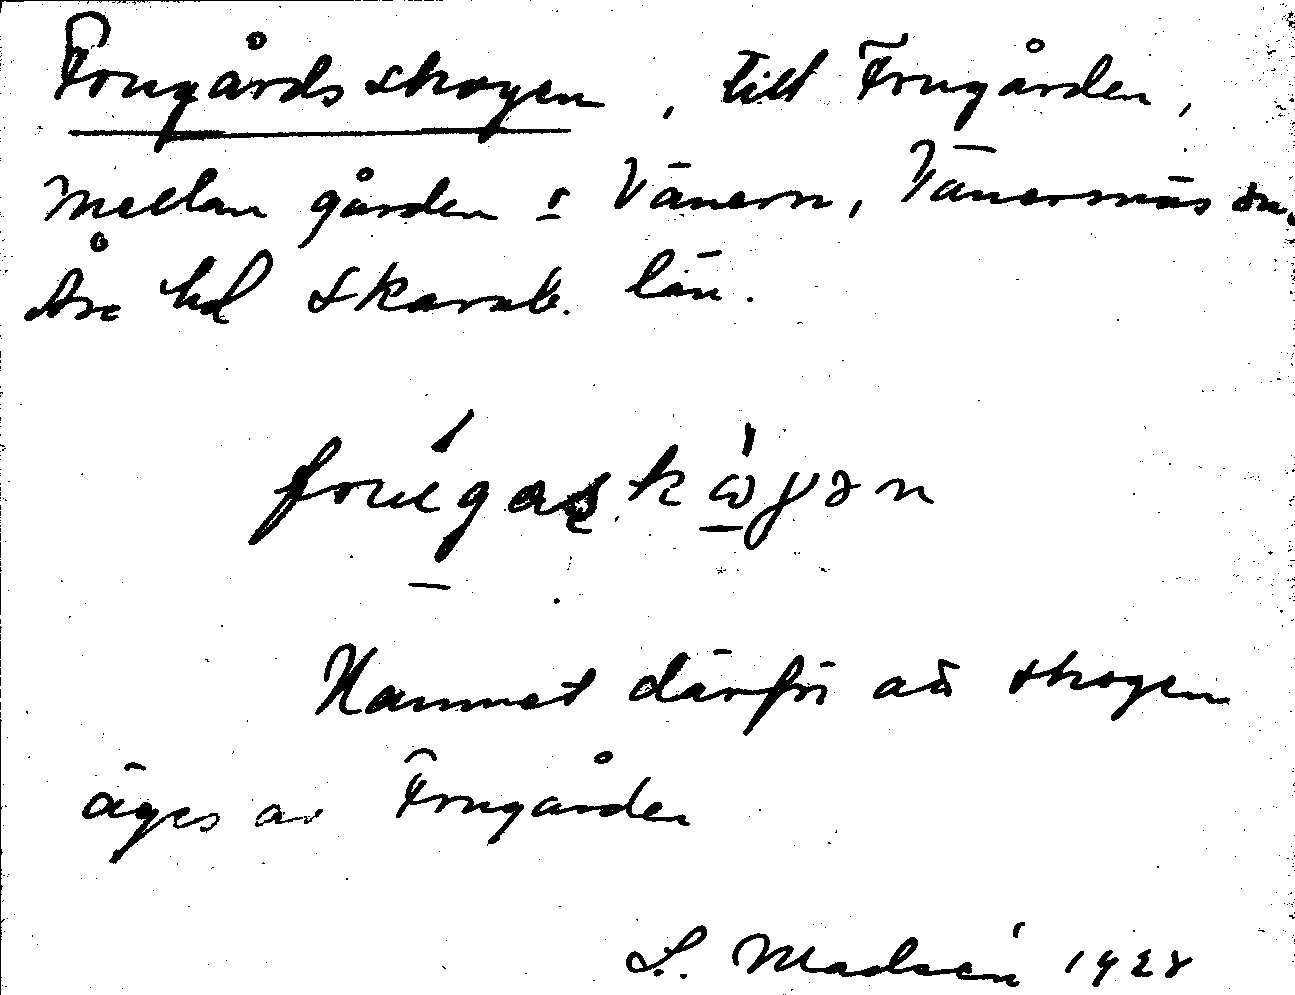 Frugårdsskogen, till Frugården,
mellan gården o Vänern, Vänersnäs sn.
Åse hd Skarab. län.
Namnet därför att skogen
äges av Frugården
L. Madsén 1928